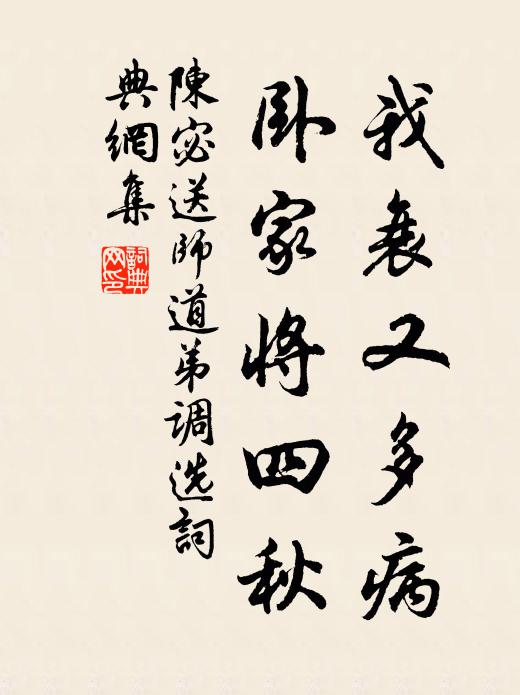 我衰又多病
卧家将四秋
陳宓送师道弟调选詞
典網集
詞典
网印